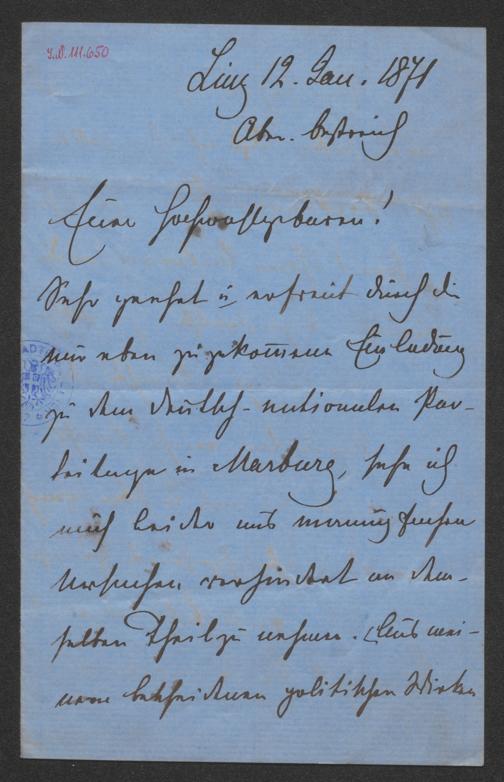 J.N. 111.650
Linz 12. Jan. 1871
Ober-Östreich
Euer Hochwohlgeboren!
Sehr geehrt u erfreut durch die
mir eben zugekommene Einladung
zu dem deutsch-nationalen Par-
teitage in Marburg, sehe ich
mich leider aus mannigfachen
Ursachen verhindert an dem-
selben Theil zu nehmen. Aus mei-
nem bescheidenen politischen Wirken